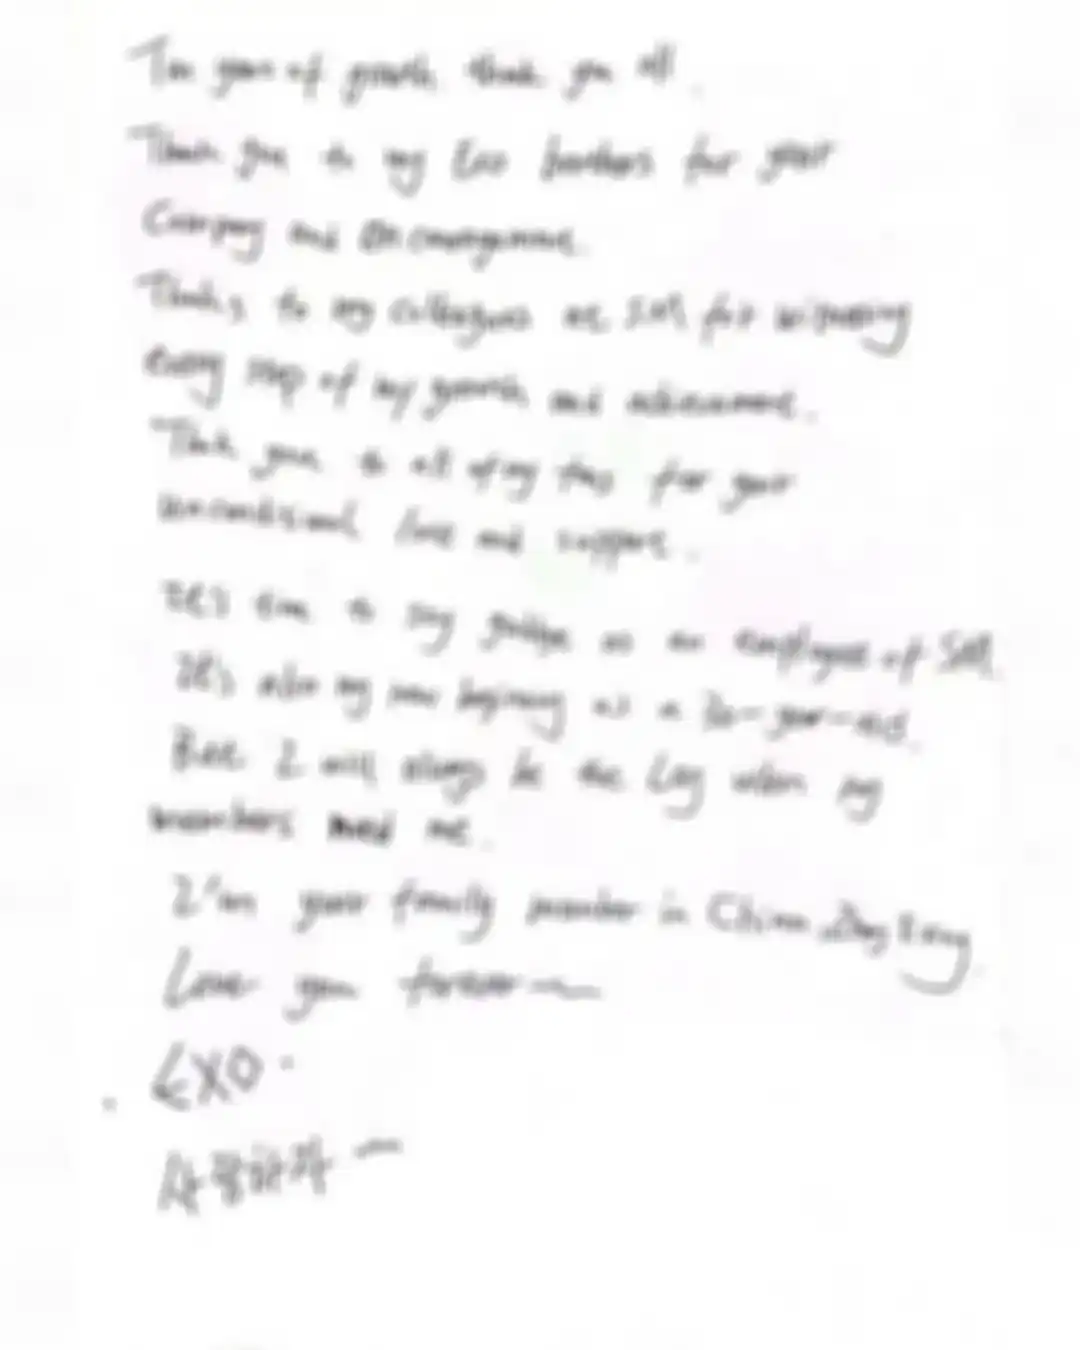 Ten years of growth, thank you all.
Thank you to my Exo brothers for your
Company and encouragement.
Thanks to my colleagues at SM for witnessing
every step of my growth and achievement.
Thank you to all of my fans for your
unconditional love and support.
It's time to say goodbye as an employee of SM.
It's also my new beginning as a 30-year-old.
But I will always be the Lay when my
members need me.
I'm your family member in China,
Love you forever
EXO